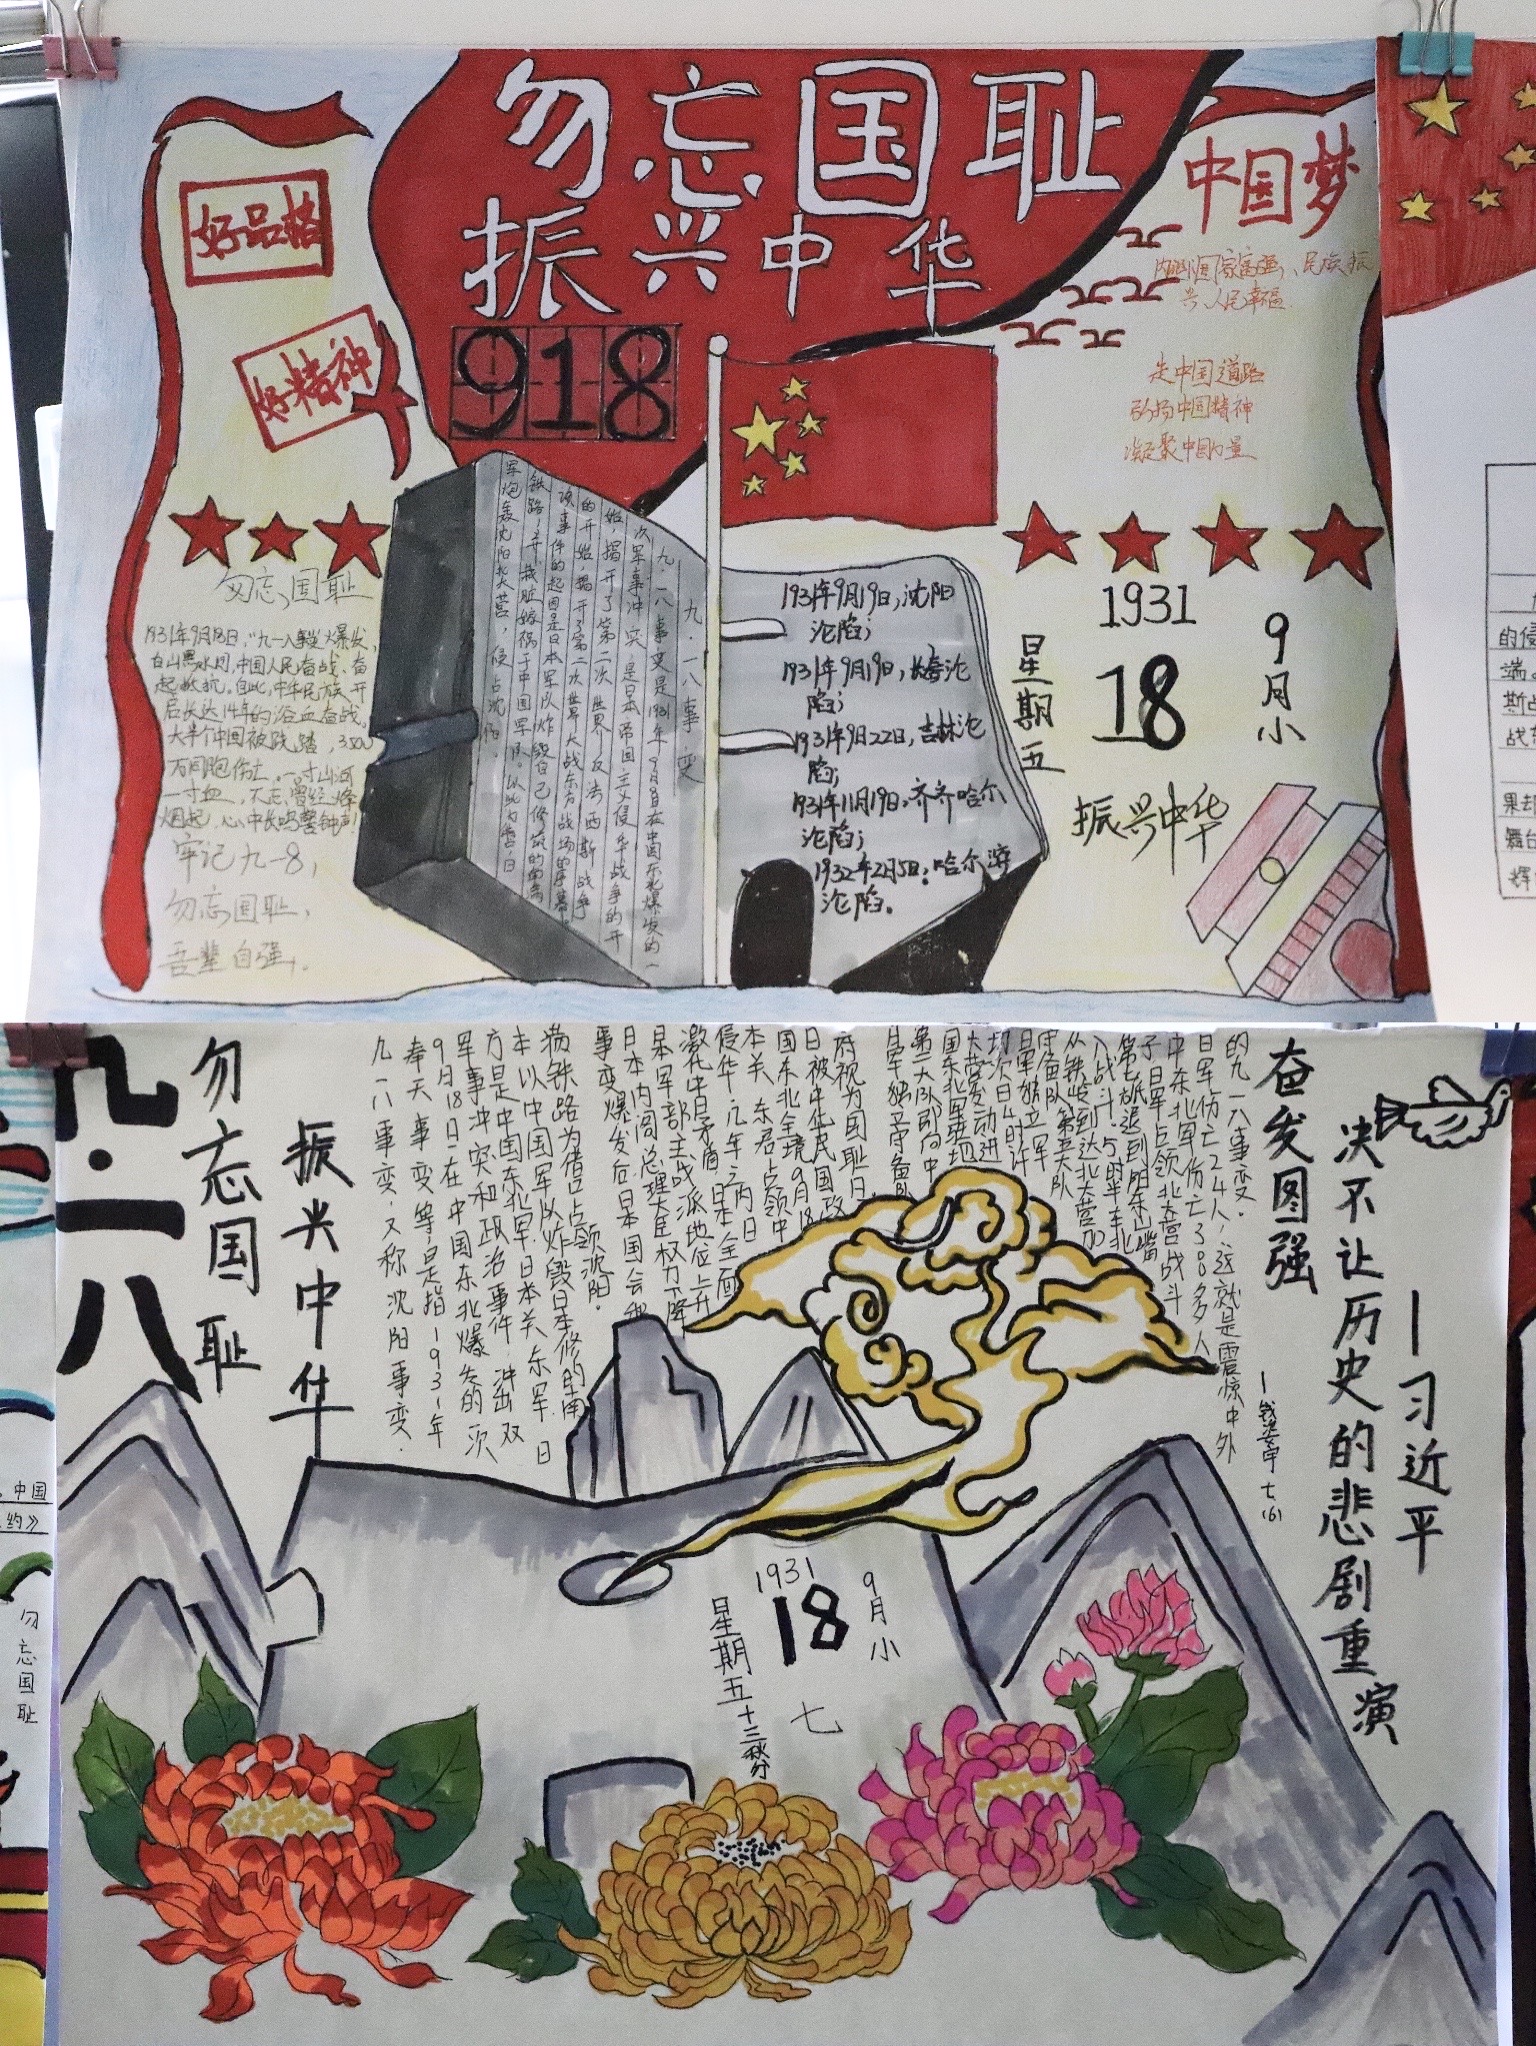 勿忘国耻
振兴中华
918
好品格
好精神
中国梦
国家富强、民族振
兴、人民幸福
走中国道路
弘扬中国精神
凝聚中国力量
勿忘国耻
1931年9月18日,"九一八事变"爆发,
白山黑水间,中国人民奋战、奋
起抵抗。自此,中华民族开
启长达14年的浴血奋战。
大半个中国被践踏,3500
万同胞伤亡。一寸山河
一寸血,不忘曾经烽
烟起,心中长鸣警钟声!
牢记九一8,
勿忘国耻,
吾辈自强。
九·一八事变
九一八事变是1931年9月18日在中国东北爆发的一
次军事冲突,是日本帝国主义侵华战争的开
始,揭开了第二次世界反法西斯战争
的开始,揭开了第二次世界大战东方战场的序幕。
该事件的起因是日本军队炸毁自己修筑的南满
铁路,并栽赃嫁祸于中国军队。以此为借口,日
军炮轰沈阳北大营,侵占沈阳。
1931年9月19日,沈阳
沦陷;
1931年9月19日,长春沦
陷;
1931年9月22日,吉林沦
陷;
1931年11月19日,齐齐哈尔
沦陷;
1932年2月5日:哈尔滨
沦陷。
1931
9月小
18
星期五
振兴中华
的侵
端。
战东
果却
舞台
九·一八
勿忘国耻
振兴中华
九一八事变又称沈阳事变.
奉天事变等是指1931年
9月18日在中国东北爆发的一次
军事冲突和政治事件.冲出双
方是中国东北军.日本关东军.日
本以中国军队炸毁日本修的南
满铁路为借口占领沈阳.
事变爆发后日本国会和
日本内阁总理大臣权力下降
日军部主战派地位上升
激化中日矛盾.日本全面
侵华.几年之内日
本关东军占领中
国东北全境.9月18
日被中华民国政
府视为国耻日.
日军独立守备队
第二大队即向中
国东北军驻地
大营发动进
攻次日4时许
日军独立军
守备队第五大队
从铁岭到达北大营加
入战斗.5时半东北
子日军占领北大营战斗
中东北军伤亡300多人
日军伤亡24人,这就是震惊中外
的九一八事变.
七(6)
奋发图强
决不让历史的悲剧重演
—习近平
1931
9月小
18
星期五
七
十三秋分
中国
约》
勿忘国耻